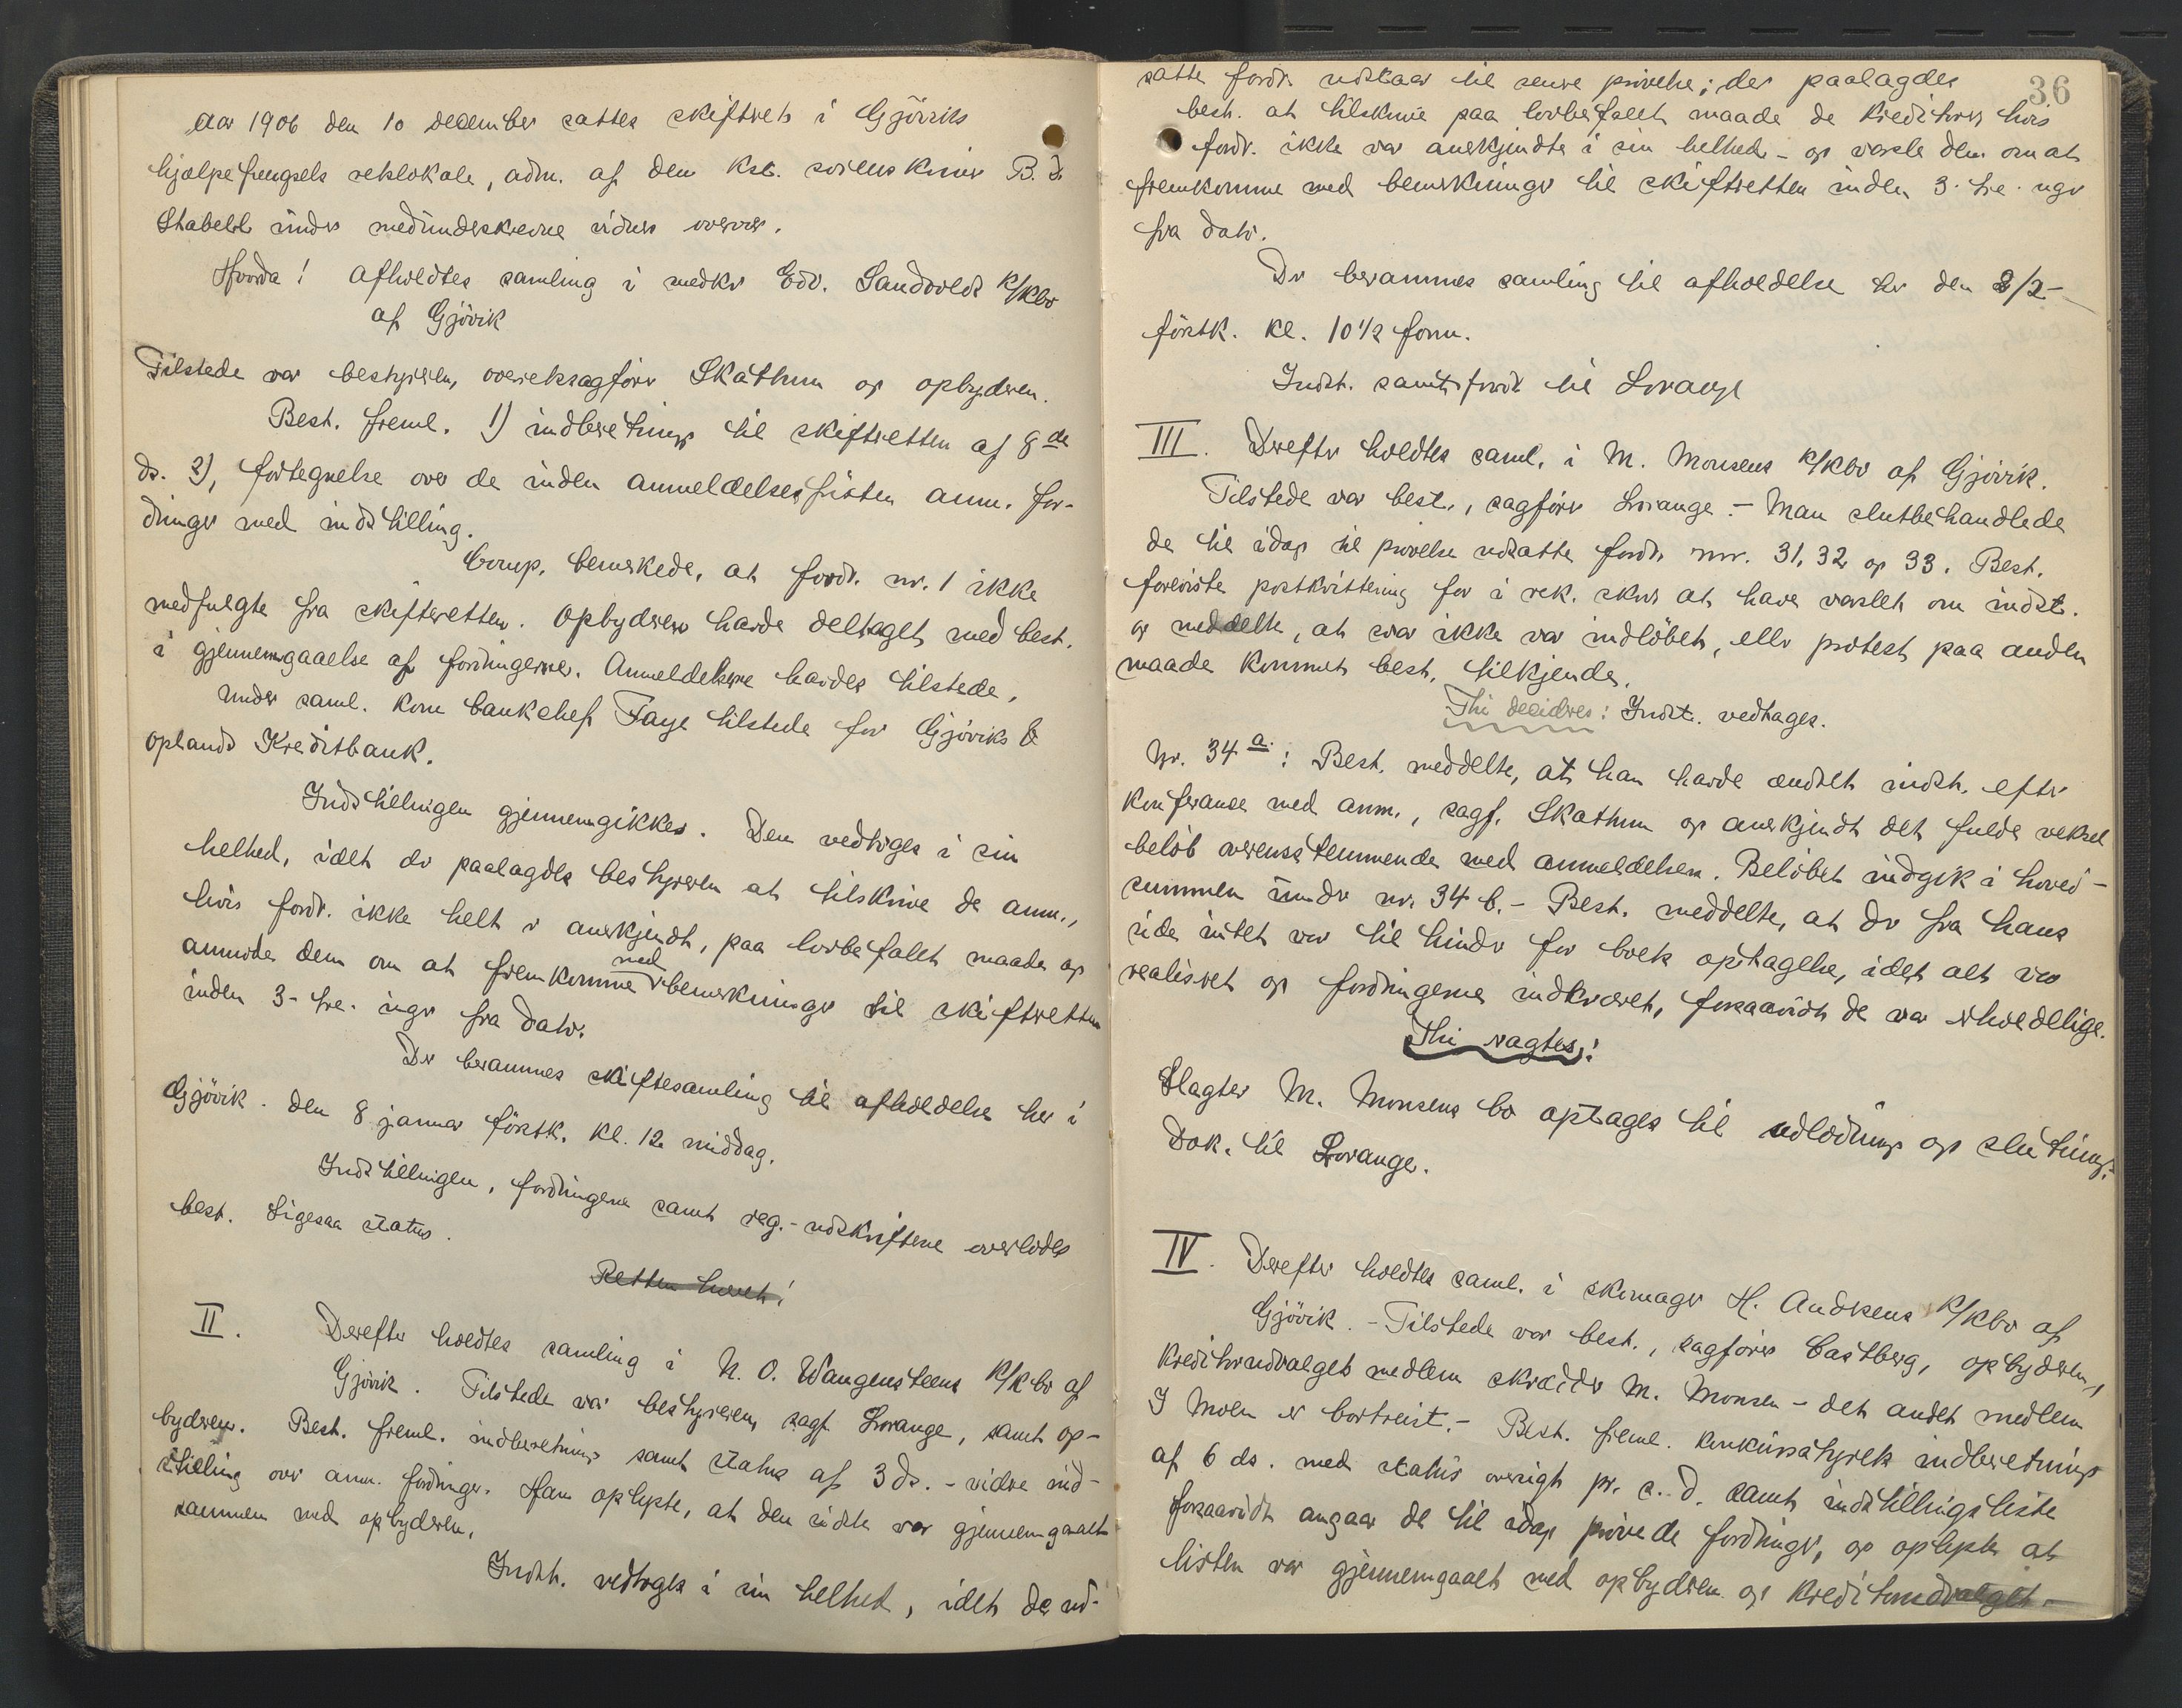 Aar 1906 den 10 december sattes skifteret i Gjöviks
hjælpefengsels retslokale, adm. af den kst. sorenskriver B. D.
Stabell under medunderskrevne vidners overvær.
Hvorda! afholdtes samling i medkr Edv. Sandvolds K/Kbo
af Gjövik
Tilstede var bestyreren, overretssagförer Skattum og opbyderen.
Best. freml. 1) indberetning til skifteretten af 8de
ds. 2), fortegnelse over de inden anmeldelsesfristen anm. for-
dringer med indstilling.
Comp. bemerkede, at fordr. nr. 1 ikke
medfulgte fra skifteretten. Opbyderen havde deltaget med best.
i gjennemgaaelse af fordringerne. Anmeldelserne havdes tilstede.
Under saml. kom bankchef Faye tilstede for Gjöviks &
oplands Kreditbank.
Indstillingen gjennemgikkes. Den vedtoges i sin
helhed, idet der paalagdes bestyreren at tilskrive de anm.,
hvis fordr. ikke helt er anerkjendt, paa lovbefalet maade og
anmode dem om at fremkomme med bemerkninger til skifteretten
inden 3-tre. uger fra dato.
Der berammes skiftesamling til afholdelse her i
Gjövik. den 8 januar förstk. kl. 12 middag.
Indstillingen, fordringerne samt reg.-udskriftene overlodes
best. Ligesaa status.
Retten hævet!
II. Derefter holdtes samling i N. O. Wangensteens K/K bo af
Gjövik. Tilstede var bestyreren, sagf. Lorange, samt op-
byderen. Best. freml. indberetning samt status af 3 ds. - videre ind-
stilling over anm. fordringer. Han oplyste, at den sidste var gjennemgaaet
sammen med opbyderen.
Indst. vedtoges i sin helhed, idet de ud-
36
satte fordr. udstaar til senere prövelse; der paalagdes
best. at tilskrive paa lovbefalet maade de kreditorer hvis
fordr. ikke var anerkjendte i sin helhed - og varsle dem om at
fremkomme med bemerkninger til skifteretten inden 3-tre-uger
fra dato.
Der berammes samling til afholdelse her den 8/2-
förstk. kl. 10 1/2 form.
Indst. samt fordr til Lorange
III. Derefter holdtes saml. i M. Monsens K/Kbo af Gjövik.
Tilstede var best., sagförer Lorange. - Man slutbehandlede
de til idag til prövelse udsatte fordr. nr. 31, 32 og 33. Best.
foreviste postkvittering for i rek. skriv at have varslet om indst.
og meddelte, at svar ikke var indlöbet, eller protest paa anden
maade kommet best. tilkjende.
Thi decideres: Indst. vedtages.
Nr. 34 a.: Best. meddelte, at han havde ændret indst. efter
konferance med anm., sagf. Skattum og anerkjendt det fulde veksel
belöb overensstemmende med anmeldelsen. Belöbet indgik i hoved-
summen under nr. 34 b. - Best. meddelte, at der fra hans
side intet var til hinder for boets optagelse, idet alt var
realiseret og fordringerne indkrævet, forsaavidt de var erholdelige.
Thi sagtes:
Slagter M. Monsens bo optages til udlodning og slutning.
Dok. til Lorange.
IV. Derefter holdtes saml. i skomager H. Andersens K/Kbo af
Gjövik. - Tilstede var best., sagförer Castberg, opbyderen,
kreditorudvalgets medlem skrædder M. Monsen - det andet medlem
I Moen er bortreist. - Best. freml. konkursstyrets indberetning
af 6 ds. med status oversigt pr. s. d. samt indstillingsliste
forsaavidt angaar de til idag prövede fordringer, og oplyste at
listen var gjennemgaaet med opbyderen og kreditorudvalget.